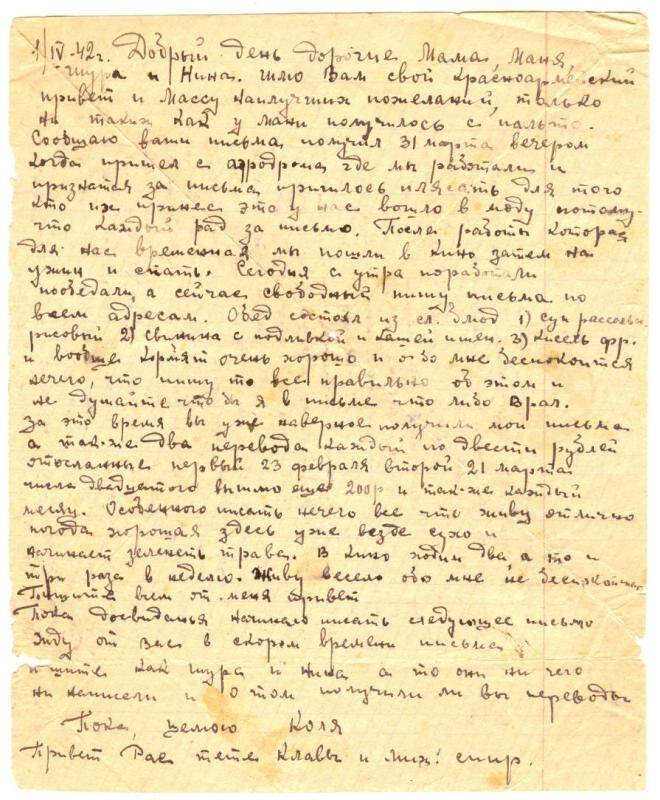 1/IV-42г. Добрый день дорогие Мама, Маня,
Шура и Нина. Шлю Вам свой Красноармейский
привет и Массу наилучших пожеланий, только
не таких как у мани получилось с пальто.
Сообщаю ваши письма получил 31 марта вечером
когда пришел с аэродрома где мы работали и
признатся за письма пришлось плясать для того
кто их принес это у нас вошло в моду потому-
что каждый рад за письмо. После работы которая
для нас временная мы пошли в кино затем на
ужин и спать. Сегодня с утра поработали
пообедали, а сейчас свободный пишу письма по
всем адресам. Обед состоял из сл. блюд 1) суп рассольн.
рисовый 2) свинина с подливкой и кашей пшен. 3) кисель фр.
и вообще кормят очень хорошо и обо мне беспокоится
нечего, что пишу то все правильно об этом и
не думайте что бы я в письме что либо врал.
за это время вы уже наверное получили мои письма
а так-же два перевода каждый по двести рублей
отосланные первый 23 февраля второй 21 марта
числа двадцатого вышлю еще 200р и так-же каждый
месяц. Особенного писать нечего все что живу отлично
погода хорошая здесь уже везде сухо и
начинает зеленеть трава. В кино ходим два а то и
три раза в неделю. Живу весело обо мне не беспокойтесь
Пишите всем от меня привет
Пока досвиданья начинаю писать следующее письмо
жду от Вас в скором времени письма
пишите как шура и нина а то они ни чего
не написали и о том получили ли вы переводы
Пока, целую Коля
Привет Рае тете Клавы и мих. спир.